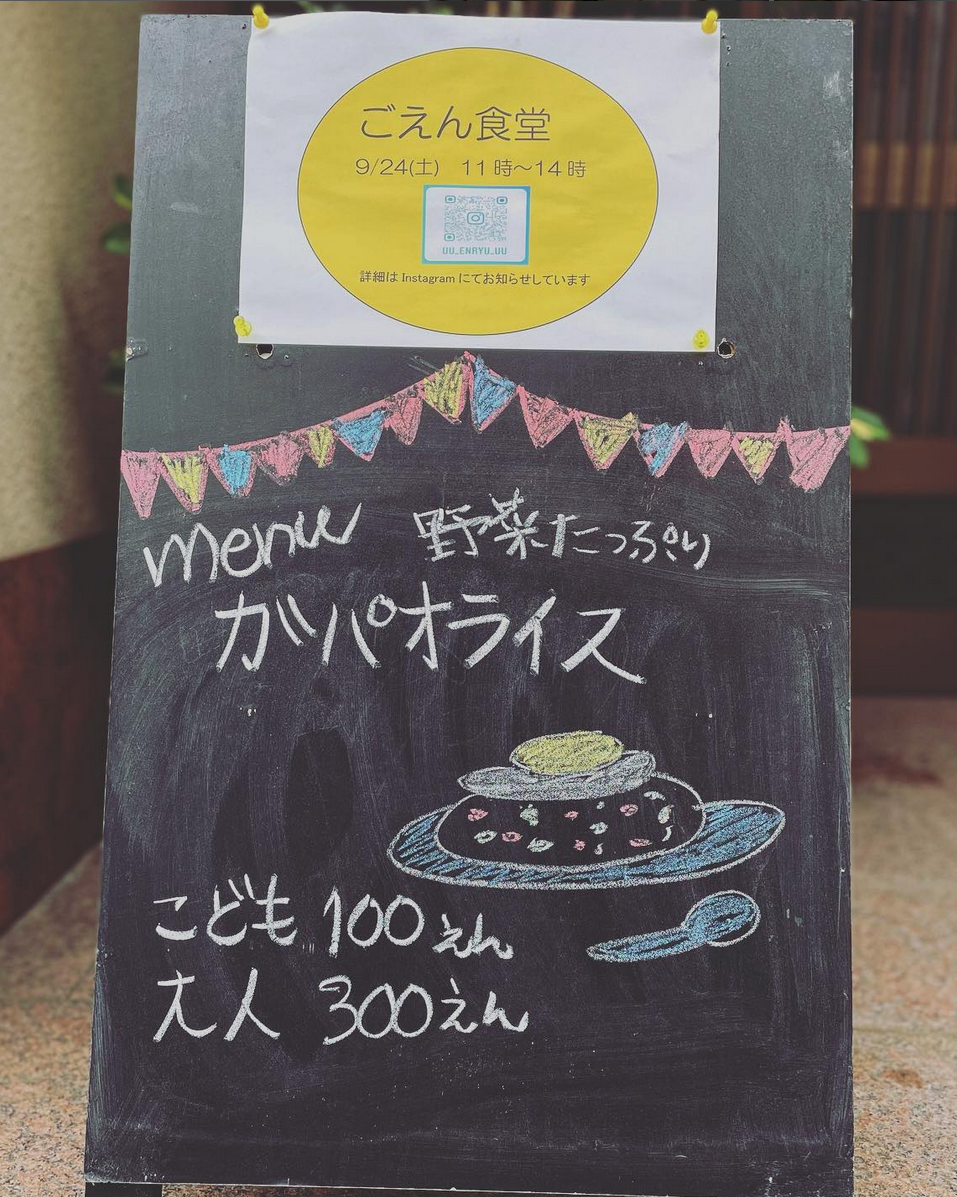 ごえん食堂
9/24(土) 11時～14時
UU_ENRYU_UU
詳細は Instagram にてお知らせしています
menu 野菜たっぷり
ガパオライス
こども 100えん
大人 300えん